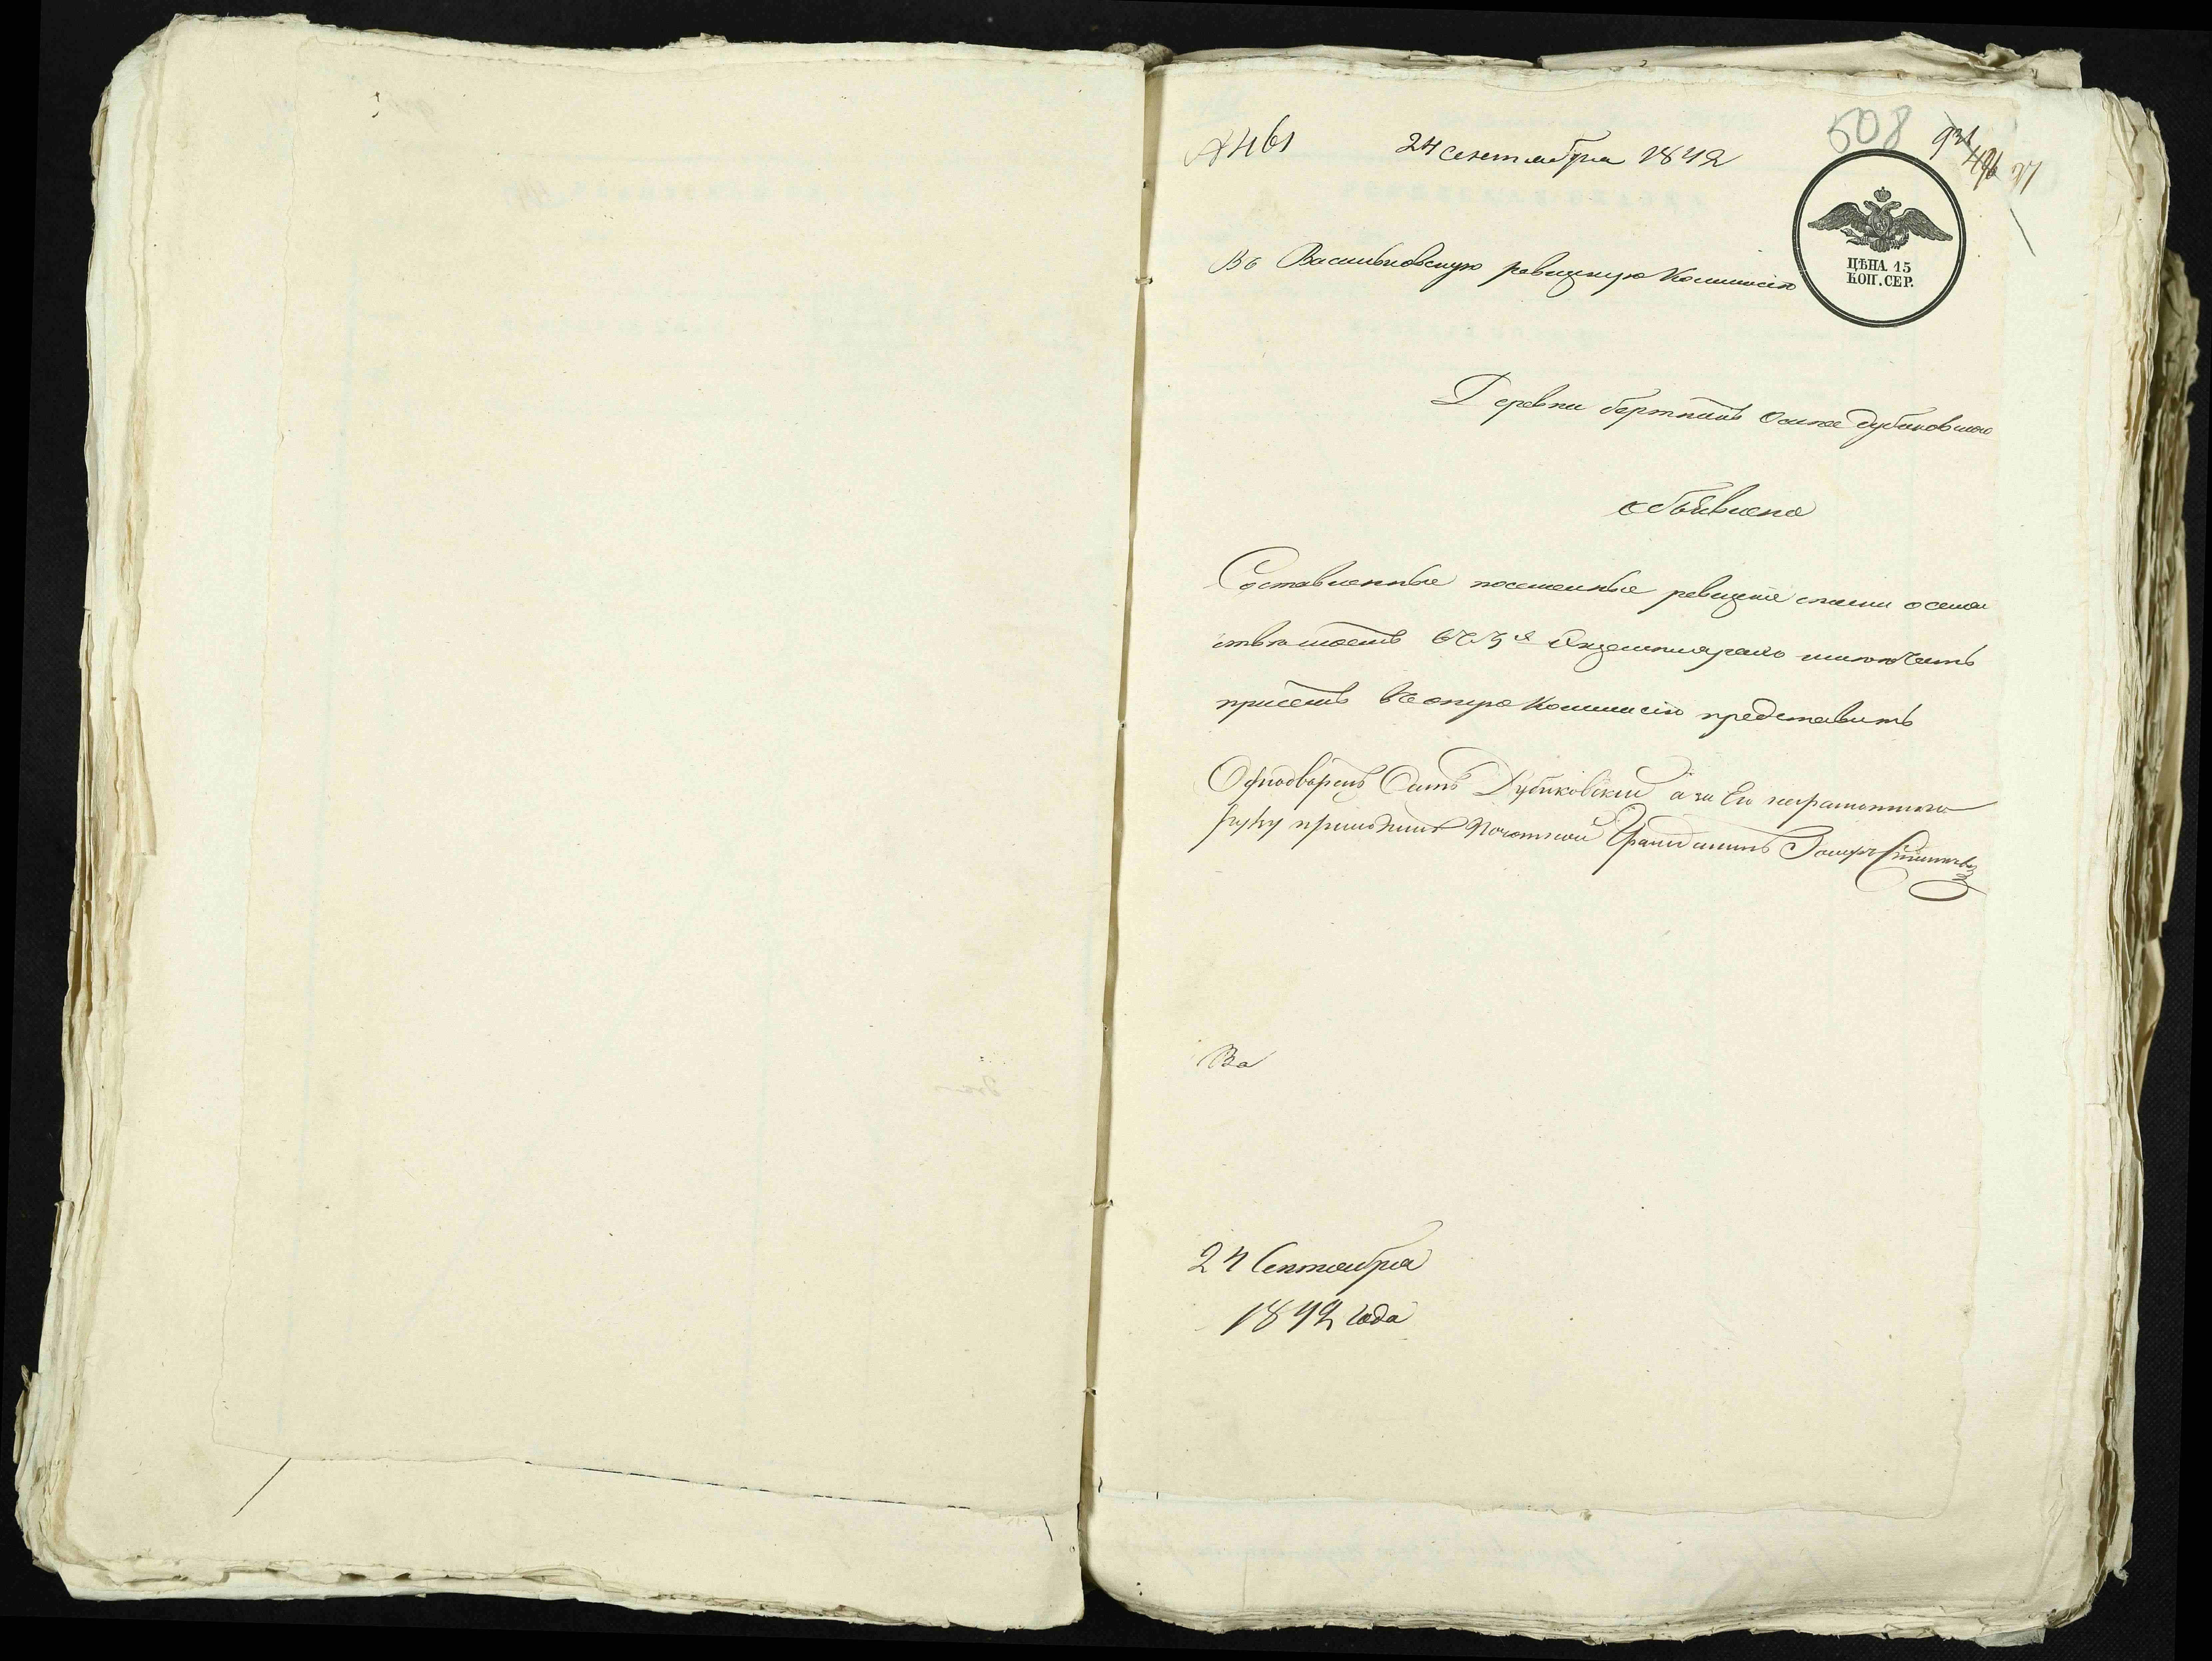 №461 24 сентября 1842
508
496 97
ЦѢНА 15
КОП. СЕР.
Въ Васильковскую ревизкую Комиссію
Деревни Осипа Дубиковскаго
объявленіе
Составленные посемейные ревизкіе о семей
ствѣ моемъ въ 3х Экземплярахъ
присемъ въ оную Коммисію представить
Однодворецъ Осипъ Дубиковскій а за Его неграмотнаго
руку приложилъ Почотной Гражданинъ
Ва
24 Сентября
1842 года